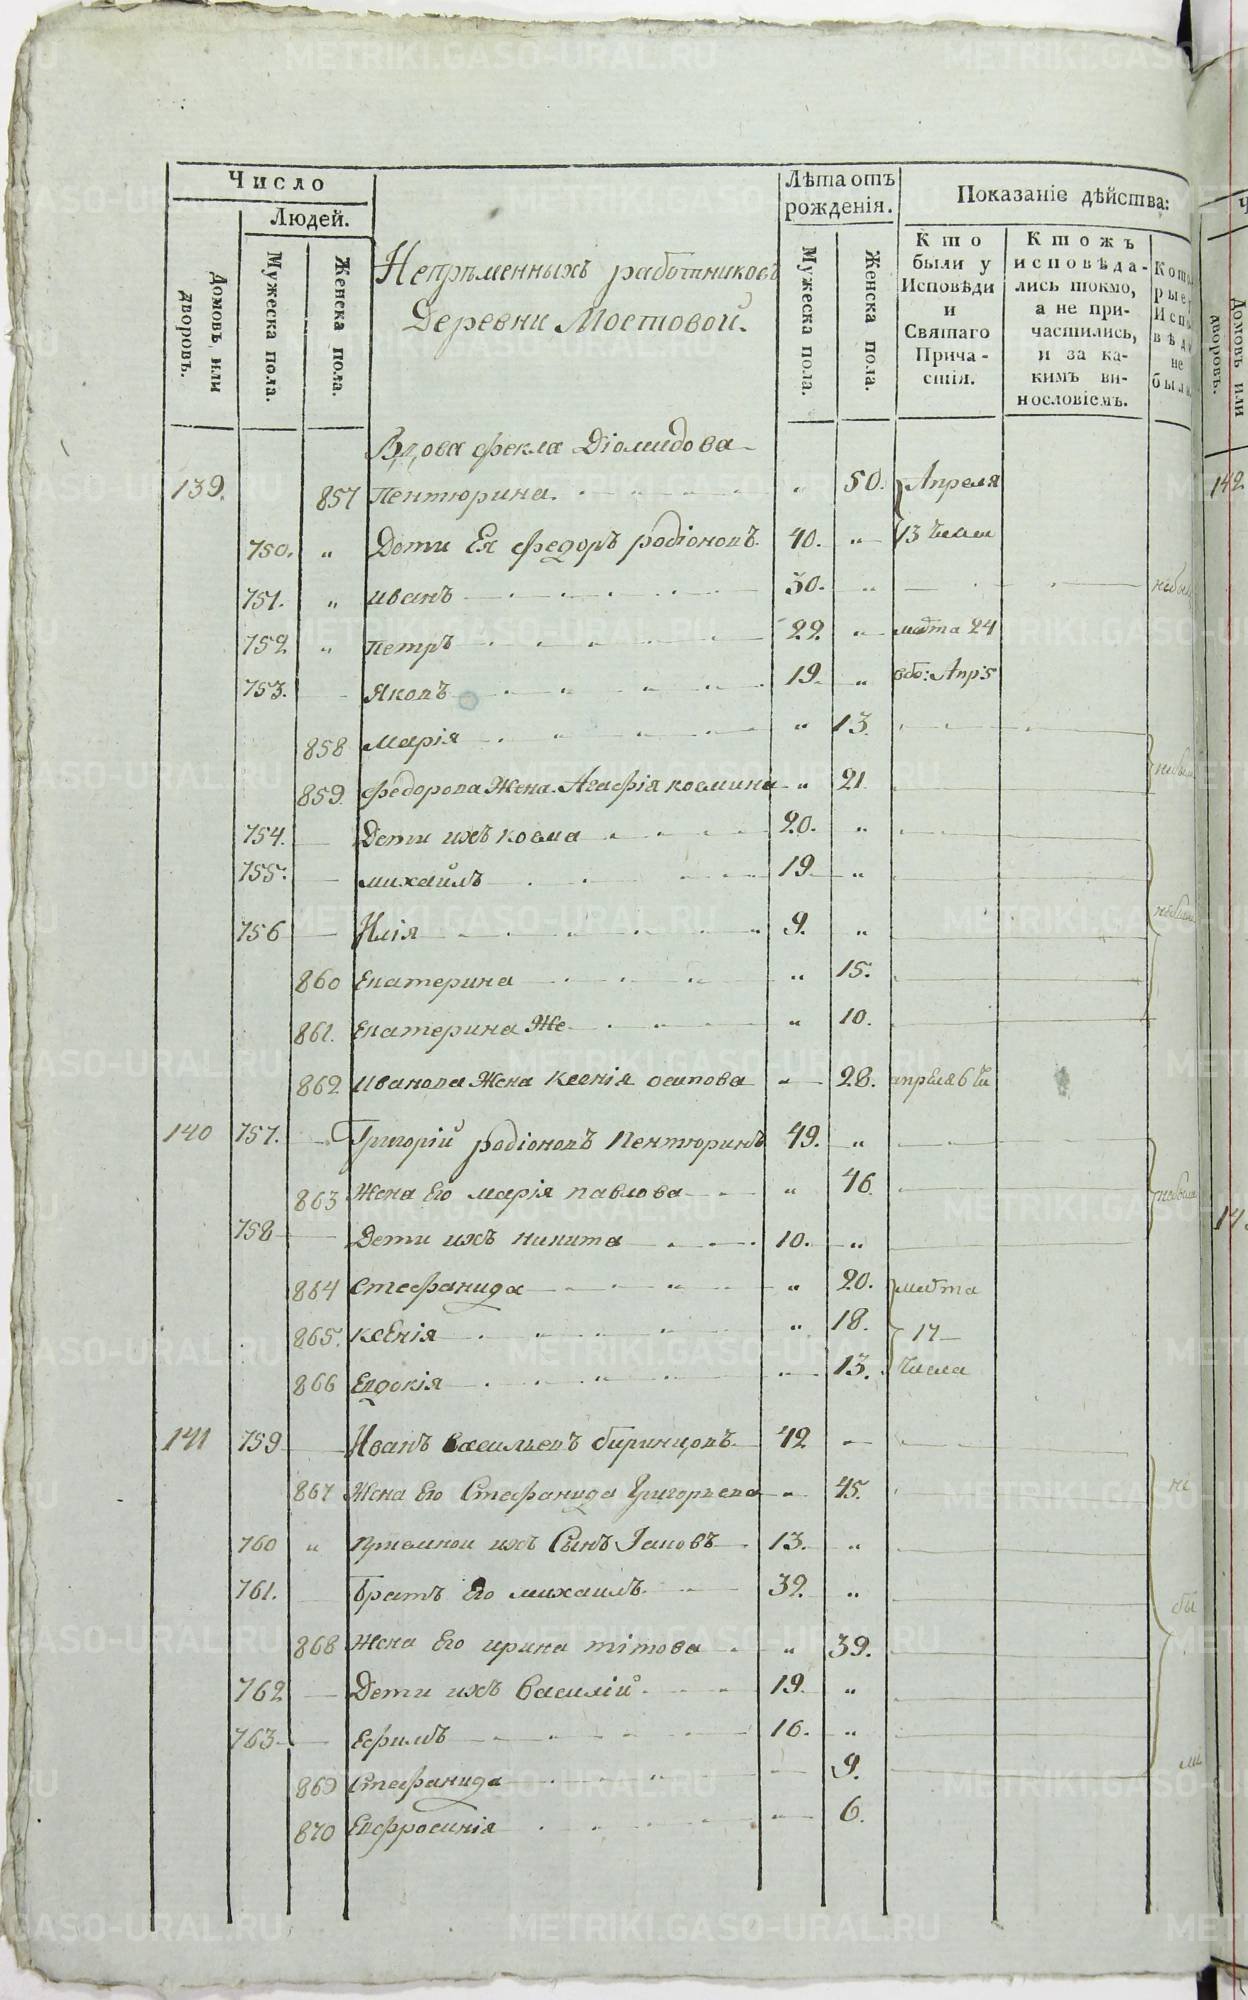 Число
Людей.
Домовъ, или дворовъ.
Мужеска пола.
Женска пола.
Непрѣменныхъ работниковъ
Деревни Мостовой.
Лѣта отъ рожденія.
Мужеска пола.
Женска пола.
Показаніе дѣйства:
Кто были у Исповѣди и Святаго Прича-стія.
Ктожъ исповѣда-лись токмо, а не при-частились, и за ка-кимъ ви-нословіемъ.
Вдова Фекла Діомидова
139. 857 Пентюрина. „ 50. Апреля
750. „ Дети Ея Федоръ родіоновъ. 40. „ 13 числ
751. „ иванъ 30. „ небыл
752 „ петръ 22. „ марта 24
753. яковъ 19. „ обо: Апр 5
858 марія „ 13.
859. Федорова Жена Агафія космина „ 21 небыли
754. Дети ихъ косма 20. „
755. михаилъ 19. „
756 Илія 9. „ небыли
860 Екатерина „ 15.
861. Екатерина Же „ 10.
862 иванова Жена Ксенія осипова „ 28. апреля 6 чи
140 757. Григорій родіоновъ Пентюринъ 49. „
863 Жена его марія павлова „ 46. небыли
758 Дети ихъ никита 10. „
864 Стефанида „ 20. марта
865. ксенія „ 18. 17
866 Евдокія „ 13. числа
141 759 Иванъ васильевъ биринцовъ. 42
867 Жена его Стефанида Григорьева „ 45. не
760 „ приемной ихъ Сынъ Іаковъ. 13. „
761. братъ его михаилъ. 32. „ бы
868 Жена его ирина тітова „ 39.
762 Дети ихъ василій 19. „
763 Ефимъ 16. „
869 Стефанида 9. ли
870 Евфросинія 6.
142
METRIKI.GASO-URAL.RU